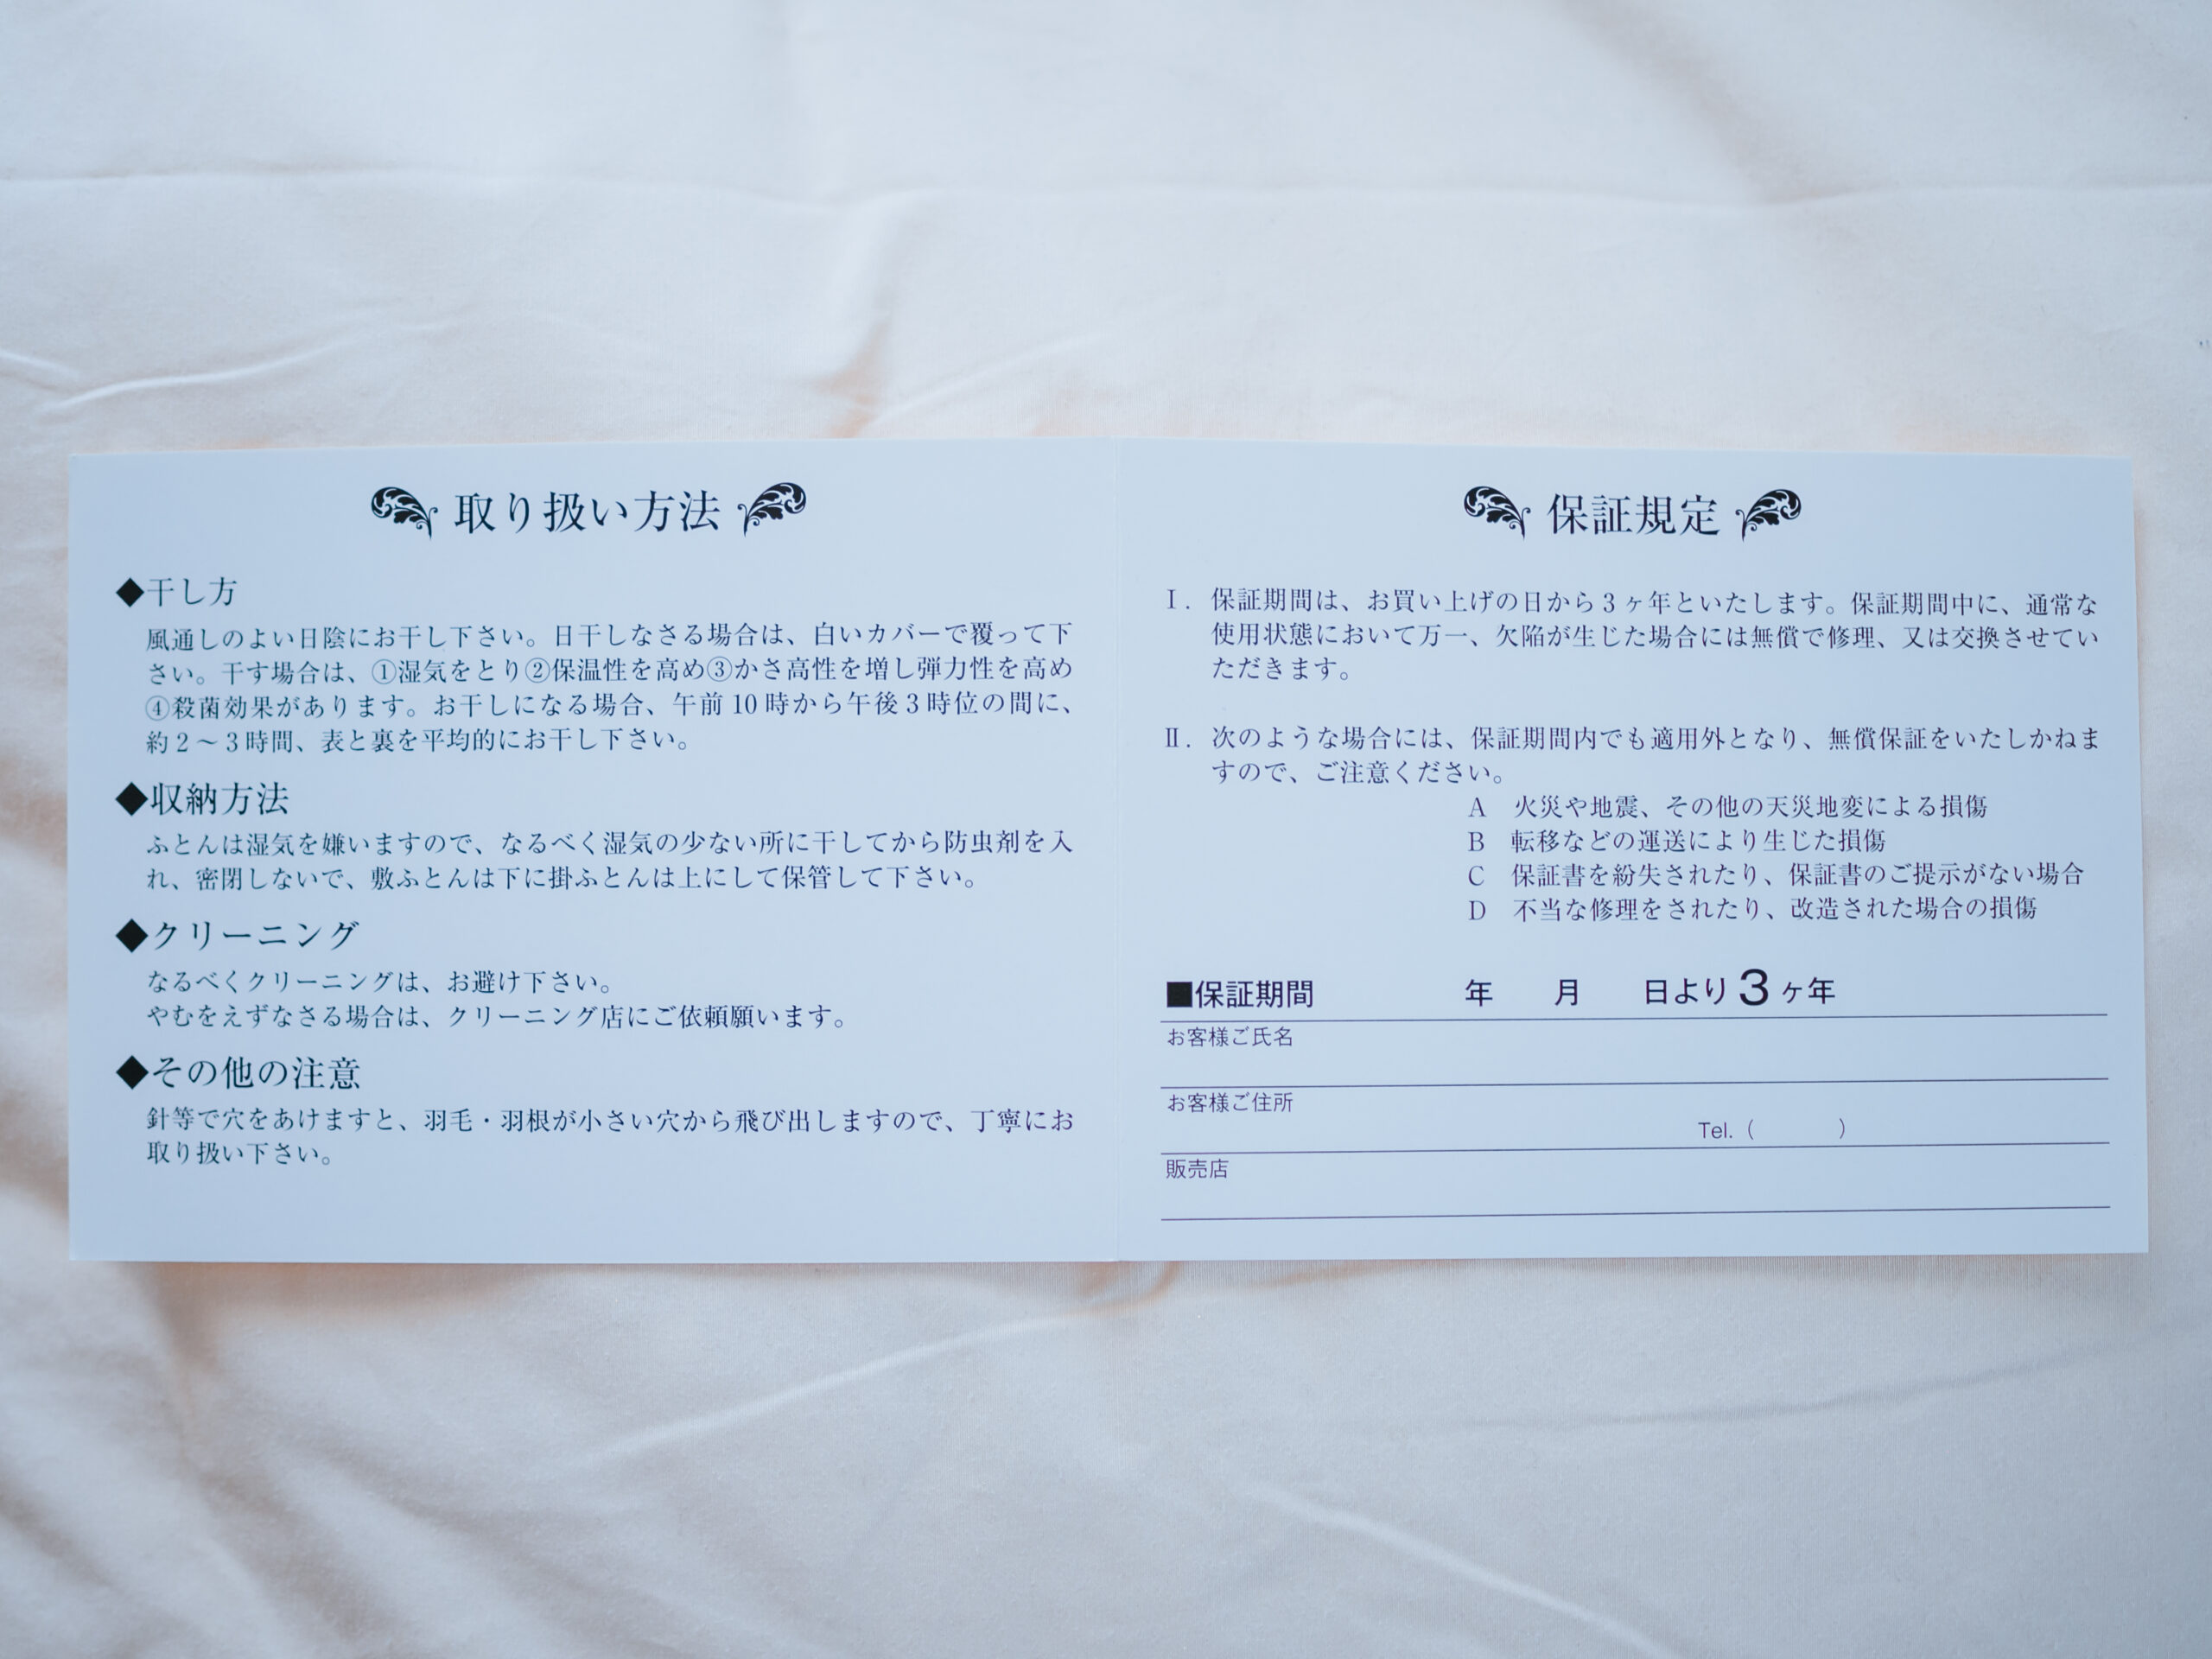 取り扱い方法
◆干し方
風通しのよい日陰にお干し下さい。日干しなさる場合は、白いカバーで覆って下
さい。干す場合は、①湿気をとり②保温性を高め③かさ高性を増し弾力性を高め
④殺菌効果があります。お干しになる場合、午前10時から午後3時位の間に、
約2〜3時間、表と裏を平均的にお干し下さい。
◆収納方法
ふとんは湿気を嫌いますので、なるべく湿気の少ない所に干してから防虫剤を入
れ、密閉しないで、敷ふとんは下に掛ふとんは上にして保管して下さい。
◆クリーニング
なるべくクリーニングは、お避け下さい。
やむをえずなさる場合は、クリーニング店にご依頼願います。
◆その他の注意
針等で穴をあけますと、羽毛・羽根が小さい穴から飛び出しますので、丁寧にお
取り扱い下さい。
保証規定
Ⅰ. 保証期間は、お買い上げの日から3ヶ年といたします。保証期間中に、通常な
使用状態において万一、欠陥が生じた場合には無償で修理、又は交換させてい
ただきます。
Ⅱ. 次のような場合には、保証期間内でも適用外となり、無償保証をいたしかねま
すので、ご注意ください。
A 火災や地震、その他の天災地変による損傷
B 転移などの運送により生じた損傷
C 保証書を紛失されたり、保証書のご提示がない場合
D 不当な修理をされたり、改造された場合の損傷
■保証期間 年 月 日より3ヶ年
お客様ご氏名
お客様ご住所
Tel. ( )
販売店